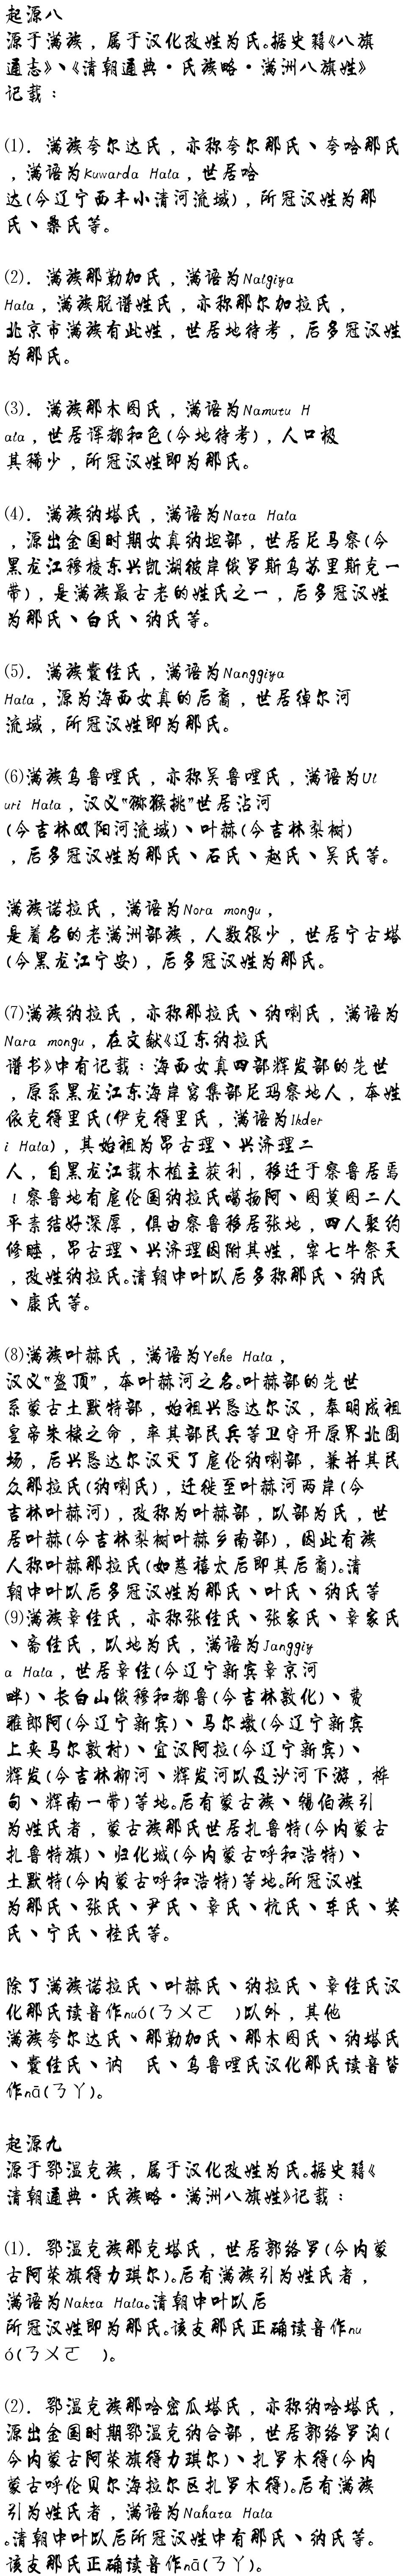 起源八
源于满族，属于汉化改姓为氏。据史籍《八旗
通志》、《清朝通典·氏族略·满洲八旗姓》
记载：
⑴．满族夸尔达氏，亦称夸尔那氏、夸哈那氏
，满语为Kuwarda Hala，世居哈
达(今辽宁西丰小清河流域)，所冠汉姓为那
氏、桑氏等。
⑵．满族那勒加氏，满语为Nalgiya
Hala，满族脱谱姓氏，亦称那尔加拉氏，
北京市满族有此姓，世居地待考，后多冠汉姓
为那氏。
⑶．满族那木图氏，满语为Namutu H
ala，世居浑都和色(今地待考)，人口极
其稀少，所冠汉姓即为那氏。
⑷．满族纳塔氏，满语为Nata Hala
，源出金国时期女真纳坦部，世居尼马察(今
黑龙江穆棱东兴凯湖彼岸俄罗斯乌苏里斯克一
带)，是满族最古老的姓氏之一，后多冠汉姓
为那氏、白氏、纳氏等。
⑸．满族囊佳氏，满语为Nanggiya
Hala，源为海西女真的后裔，世居绰尔河
流域，所冠汉姓即为那氏。
⑹满族乌鲁哩氏，亦称吴鲁哩氏，满语为Ul
uri Hala，汉义“猕猴桃”世居沾河
(今吉林双阳河流域)、叶赫(今吉林梨树)
，后多冠汉姓为那氏、石氏、赵氏、吴氏等。
满族诺拉氏，满语为Nora mongu，
是着名的老满洲部族，人数很少，世居宁古塔
(今黑龙江宁安)，后多冠汉姓为那氏。
⑺满族纳拉氏，亦称那拉氏、纳喇氏，满语为
Nara mongu，在文献《辽东纳拉氏
谱书》中有记载：海西女真四部辉发部的先世
，原系黑龙江东海岸窝集部尼玛察地人，本姓
依克得里氏(伊克得里氏，满语为Ikder
i Hala)，其始祖为昂古理、兴济理二
人，自黑龙江载木植主获利，移迁于察鲁居焉
！察鲁地有扈伦国纳拉氏噶扬阿、图莫图二人
平素结好深厚，俱由察鲁移居张地，四人聚约
修睦，昂古理、兴济理因附其姓，宰七牛祭天
，改姓纳拉氏。清朝中叶以后多称那氏、纳氏
、康氏等。
⑻满族叶赫氏，满语为Yehe Hala，
汉义“盔顶”，本叶赫河之名。叶赫部的先世
系蒙古土默特部，始祖兴恳达尔汉，奉明成祖
皇帝朱棣之命，率其部民兵等卫守开原界北围
场，后兴恳达尔汉灭了扈伦纳喇部，兼并其民
众那拉氏(纳喇氏)，迁徙至叶赫河两岸(今
吉林叶赫河)，改称为叶赫部，以部为氏，世
居叶赫(今吉林梨树叶赫乡南部)，因此有族
人称叶赫那拉氏(如慈禧太后即其后裔)。清
朝中叶以后多冠汉姓为那氏、叶氏、纳氏等
⑼满族章佳氏，亦称张佳氏、张家氏、章家氏
、斋佳氏，以地为氏，满语为Janggiy
a Hala，世居章佳(今辽宁新宾章京河
畔)、长白山俄穆和都鲁(今吉林敦化)、费
雅郎阿(今辽宁新宾)、马尔墩(今辽宁新宾
上夹马尔敦村)、宜汉阿拉(今辽宁新宾)、
辉发(今吉林柳河、辉发河以及沙河下游，桦
甸、辉南一带)等地。后有蒙古族、锡伯族引
为姓氏者，蒙古族那氏世居扎鲁特(今内蒙古
扎鲁特旗)、归化城(今内蒙古呼和浩特)、
土默特(今内蒙古呼和浩特)等地。所冠汉姓
为那氏、张氏、尹氏、章氏、杭氏、车氏、英
氏、宁氏、桂氏等。
除了满族诺拉氏、叶赫氏、纳拉氏、章佳氏汉
化那氏读音作nuó(ㄋㄨㄛ )以外，其他
满族夸尔达氏、那勒加氏、那木图氏、纳塔氏
、囊佳氏、讷 氏、乌鲁哩氏汉化那氏读音皆
作nā(ㄋㄚ)。
起源九
源于鄂温克族，属于汉化改姓为氏。据史籍《
清朝通典·氏族略·满洲八旗姓》记载：
⑴．鄂温克族那克塔氏，世居郭络罗(今内蒙
古阿荣旗得力琪尔)。后有满族引为姓氏者，
满语为Nakta Hala。清朝中叶以后
所冠汉姓即为那氏。该支那氏正确读音作nu
ó(ㄋㄨㄛ )。
⑵．鄂温克族那哈密瓜塔氏，亦称纳哈塔氏，
源出金国时期鄂温克纳合部，世居郭络罗沟(
今内蒙古阿荣旗得力琪尔)、扎罗木得(今内
蒙古呼伦贝尔海拉尔区扎罗木得)。后有满族
引为姓氏者，满语为Nahata Hala
。清朝中叶以后所冠汉姓中有那氏、纳氏等。
该支那氏正确读音作nā(ㄋㄚ)。